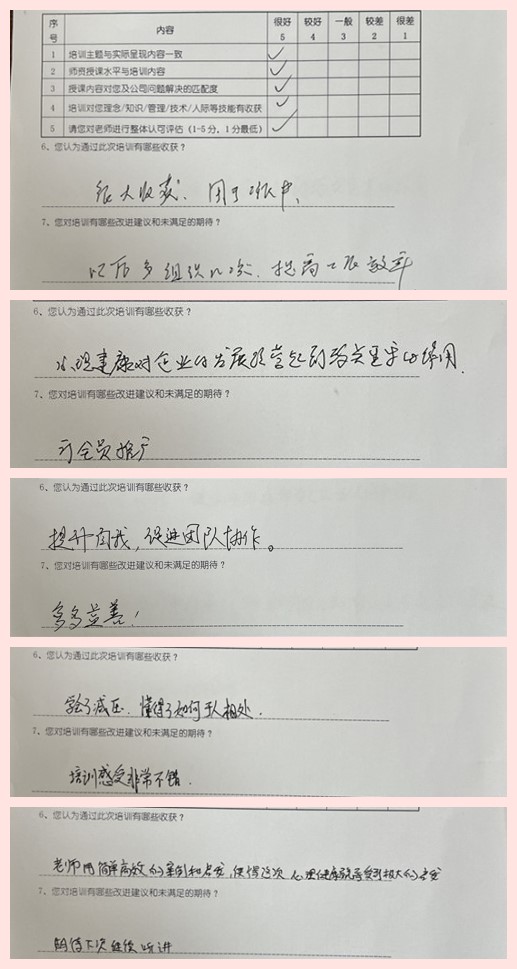 序号 内容 很好 5 较好 4 一般 3 较差 2 很差 1
1 培训主题与实际呈现内容一致 ✓
2 师资授课水平与培训内容 ✓
3 授课内容对您及公司问题解决的匹配度 ✓
4 培训对您理念/知识/管理/技术/人际等技能有收获 ✓
5 请您对老师进行整体认可评估(1-5分,1分最低) ✓
6、您认为通过此次培训有哪些收获?
很大收获、用于工作中、
7、您对培训有哪些改进建议和未满足的期待?
以后多组织几次、提高工作效率
6、您认为通过此次培训有哪些收获?
心理健康对企业的发展经营起到了至关重要的作用.
7、您对培训有哪些改进建议和未满足的期待?
可全员推广
6、您认为通过此次培训有哪些收获?
提升自我,促进团队协作。
7、您对培训有哪些改进建议和未满足的期待?
多多益善!
6、您认为通过此次培训有哪些收获?
学会了减压、懂得了如何于人相处.
7、您对培训有哪些改进建议和未满足的期待?
培训感受非常不错.
6、您认为通过此次培训有哪些收获?
老师用简单高效的案例和点发,使得这次心理健康 受到极大的点发
7、您对培训有哪些改进建议和未满足的期待?
期待下次继续听讲